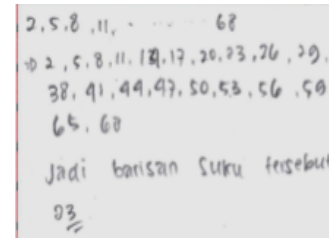 2, 5, 8, 11, - ..... 68
⇒ 2, 5, 8, 11, 14, 17, 20, 23, 26, 29,
38, 41, 44, 47, 50, 53, 56, 59
65, 68
Jadi barisan suku tersebut
23